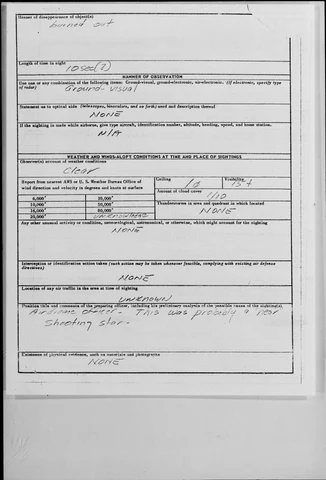 Manner of disappearance of object(s)
burned out
Length of time in sight
10 sec (?)
MANNER OF OBSERVATION
Use one or any combination of the following items: Ground-visual, ground-electronic, air-electronic. (If electronic, specify type of radar)
Ground-visual
Statement as to optical aids (telescopes, binoculars, and so forth) used and description thereof
NONE
If the sighting is made while airborne, give type aircraft, identification number, altitude, heading, speed, and home station.
N/A
WEATHER AND WINDS-ALOFT CONDITIONS AT TIME AND PLACE OF SIGHTINGS
Observer(s) account of weather conditions
Clear
Report from nearest AWS or U. S. Weather Bureau Office of wind direction and velocity in degrees and knots at surface
Ceiling
Visibility
15+
Amount of cloud cover
1/10
6,000'
10,000'
16,000'
20,000'
30,000'
50,000'
80,000'
Thunderstorms in area and quadrant in which located
NONE
Any other unusual activity or condition, meteorological, astronomical, or otherwise, which might account for the sighting
NONE
Interception or identification action taken (such action may be taken whenever feasible, complying with existing air defense directives)
NONE
Location of any air traffic in the area at time of sighting
UNKNOWN
Position title and comments of the preparing officer, including his preliminary analysis of the possible cause of the sighting(s)
Airdrome officer - This was probably a near
shooting star -
Existence of physical evidence, such as materials and photographs
NONE